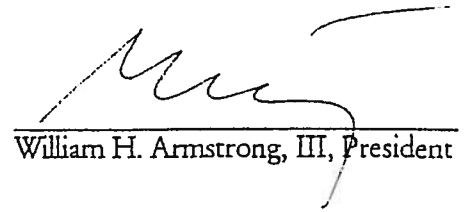 William H. Armstrong, III, President